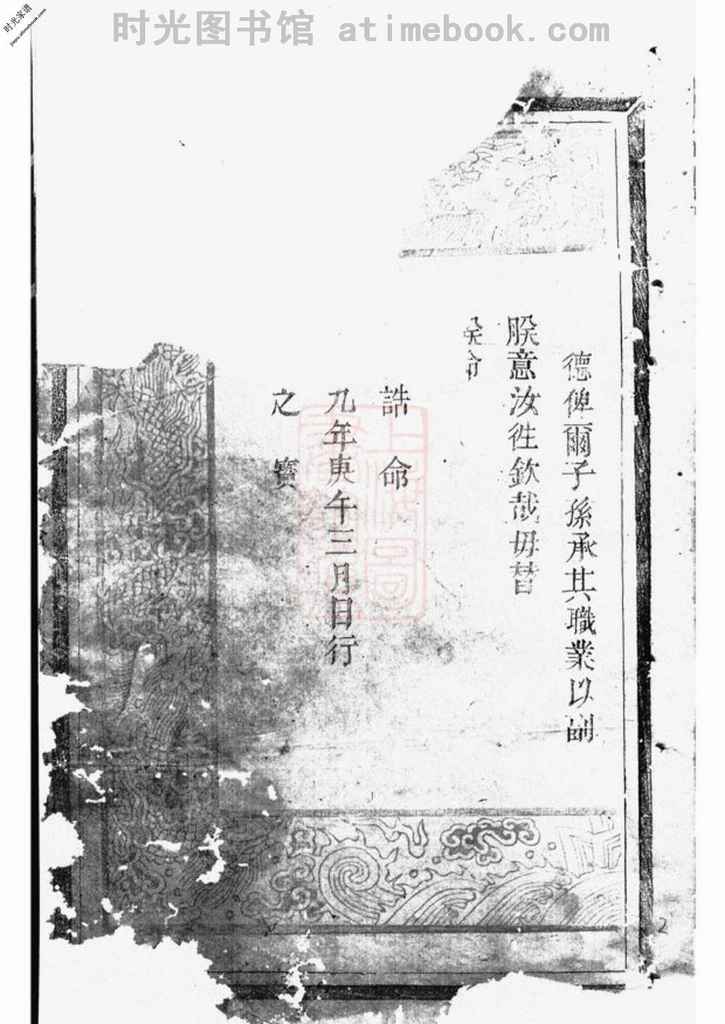 时光图书馆 atimebook.com
时光家谱
德俾爾子孫承其職業以副
朕意汝往欽哉毋替
誥命
九年庚午三月日行
之寶
2